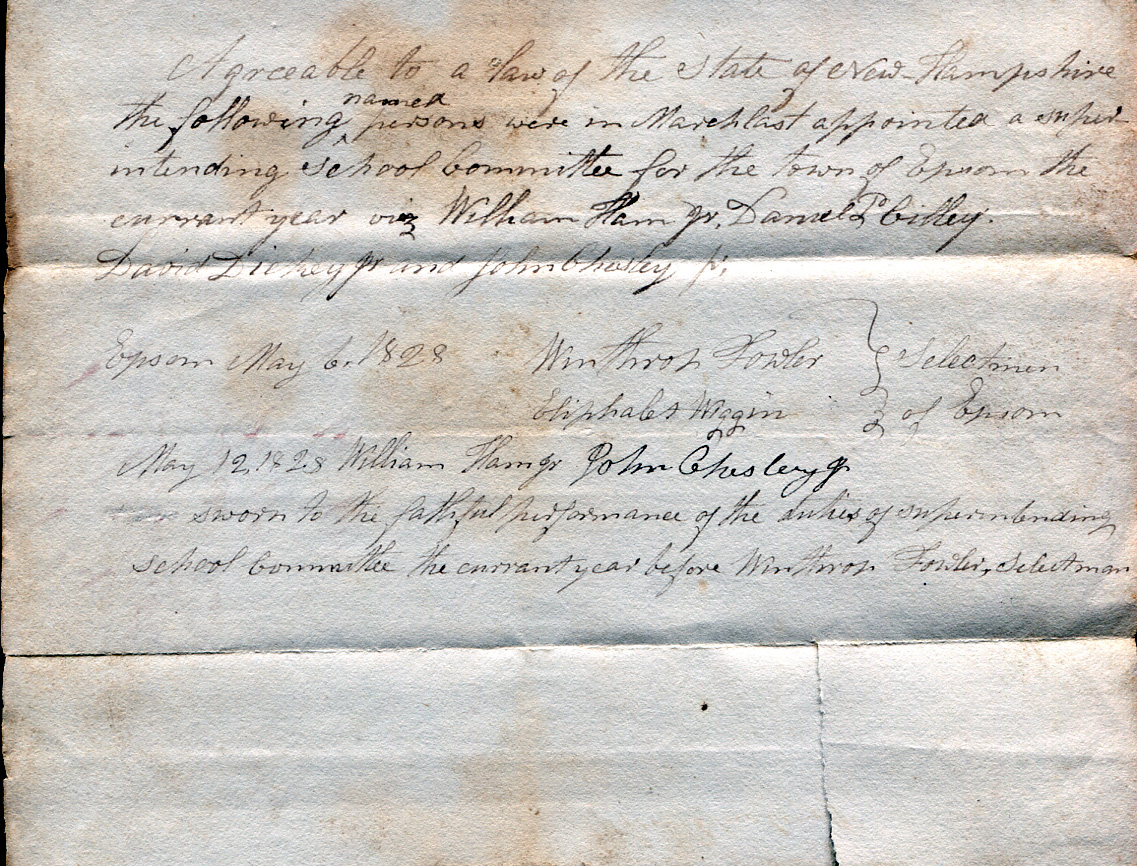 Agreeable to a law of the State of New-Hampshire
named
the following persons were in March last appointed a super-
intending School Committee for the town of Epsom the
currant year viz William Ham jr, Daniel P Cilley.
David Dickey jr and John Chesley jr,
Epsom May 6. 1828 Winthrop Fowler } Selectmen
Eliphalet Wiggin } of Epsom
May 12, 1828 William Ham jr John Chesley jr
sworn to the fathful performance of the duties of superintending
School Committee the currant year before Winthrop Fowler, Selectman